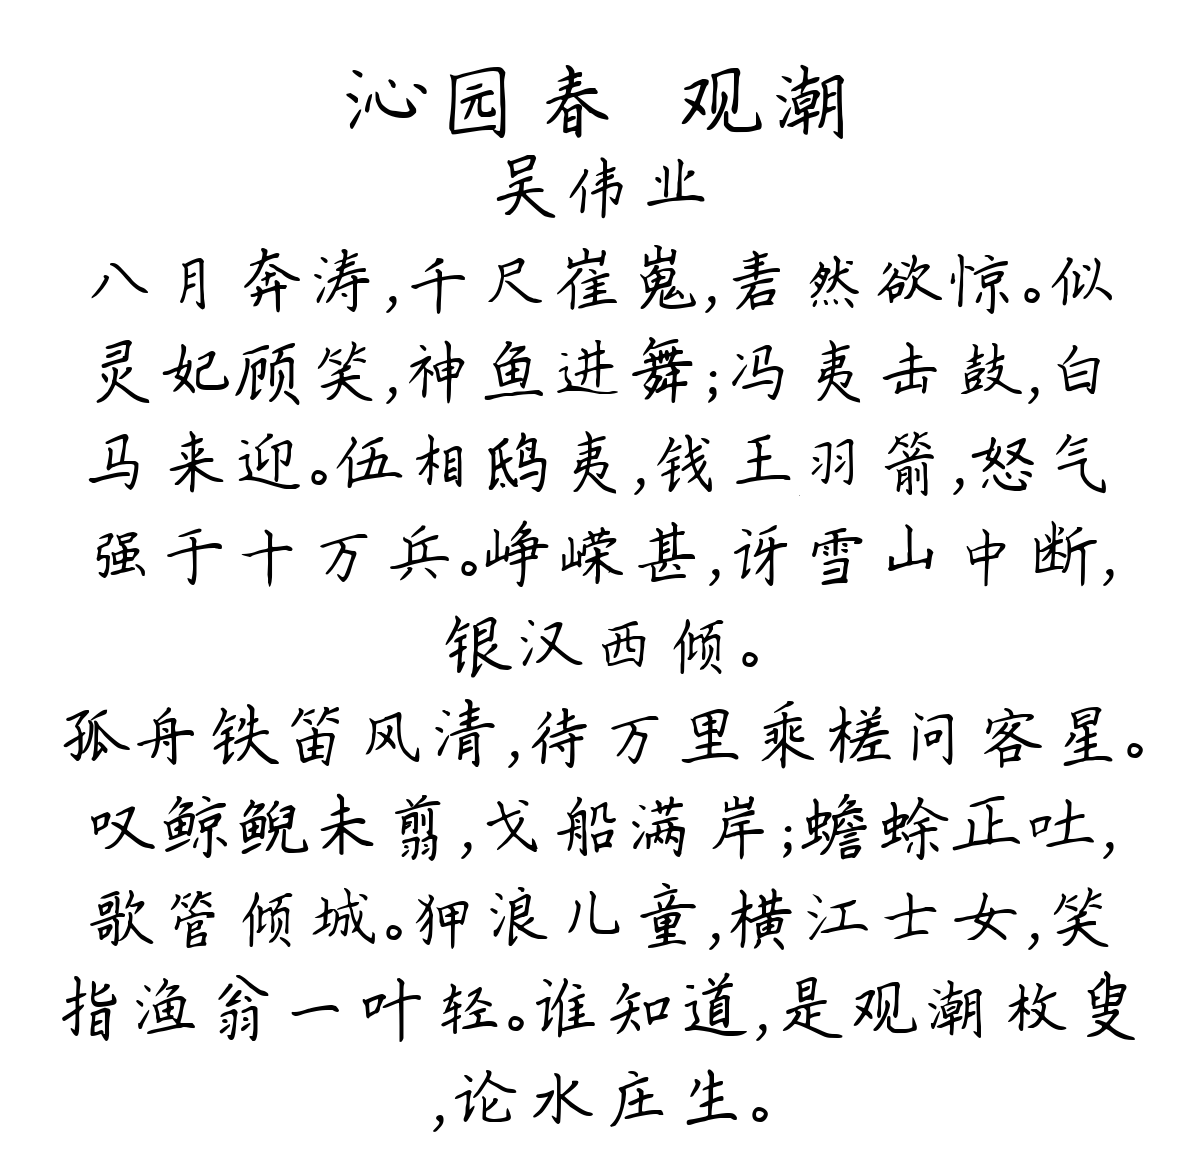 沁园春 观潮
吴伟业
八月奔涛,千尺崔嵬,砉然欲惊。似
灵妃顾笑,神鱼进舞;冯夷击鼓,白
马来迎。伍相鸱夷,钱王羽箭,怒气
强于十万兵。峥嵘甚,讶雪山中断,
银汉西倾。
孤舟铁笛风清,待万里乘槎问客星。
叹鲸鲵未翦,戈船满岸;蟾蜍正吐,
歌管倾城。狎浪儿童,横江士女,笑
指渔翁一叶轻。谁知道,是观潮枚叟
,论水庄生。